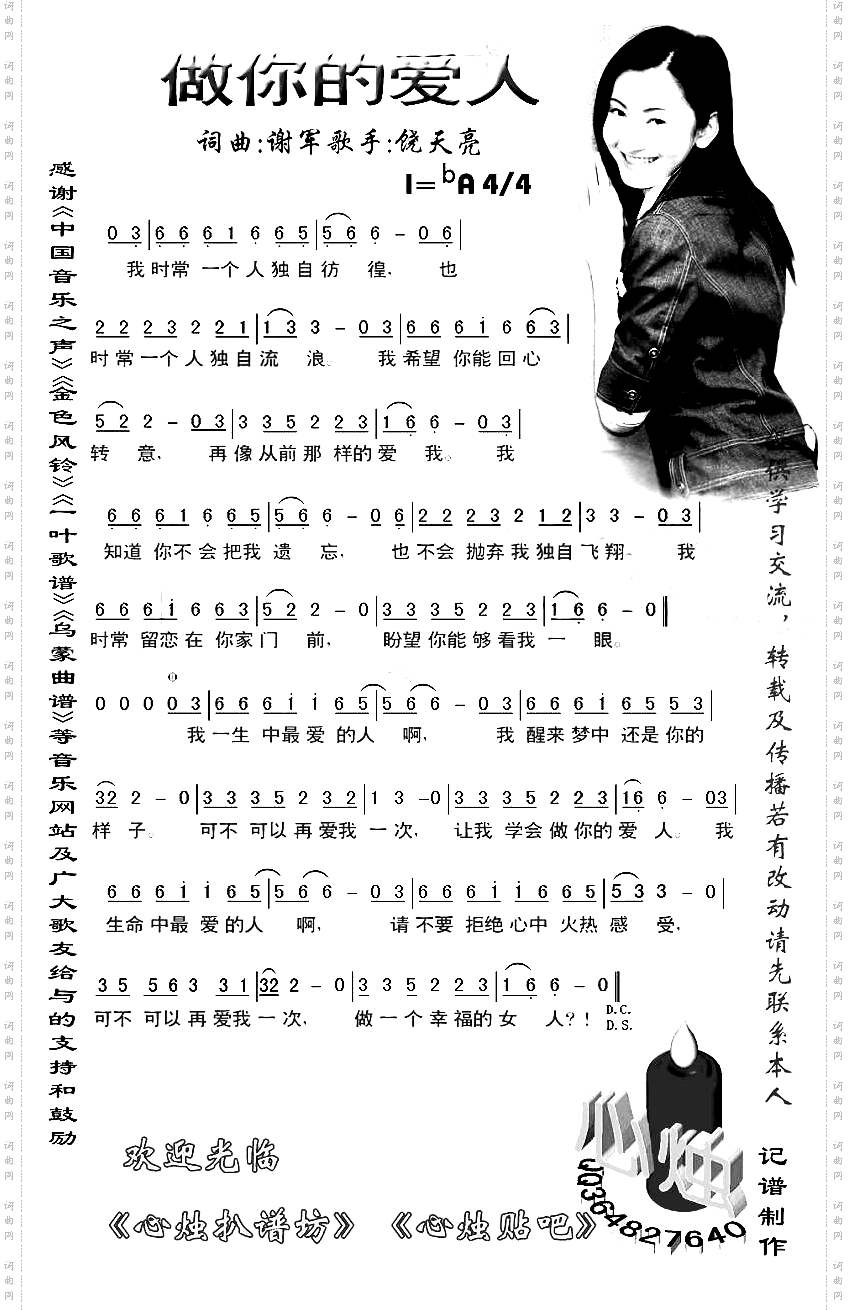 做你的爱人
词曲:谢军歌手:饶天亮
1=bA 4/4
0 3|6 6 6 1 6 6 5|5 6 6 - 0 6|
我时常 一个人独自彷 徨, 也
2 2 2 3 2 2 1|1 3 3 - 0 3|6 6 6 i 6 6 3|
时常一个人独自流 浪。 我希望 你能回心
5 2 2 - 0 3|3 3 5 2 2 3|1 6 6 - 0 3|
转 意, 再像从前那样的爱 我。 我
6 6 6 1 6 6 5|5 6 6 - 0 6|2 2 2 3 2 1 2|3 3 - 0 3|
知道 你不会把我 遗 忘, 也不会 抛弃我独自飞翔。 我
6 6 6 i 6 6 3|5 2 2 - 0|3 3 3 5 2 2 3|1 6 6 - 0||
时常 留恋在 你家门 前, 盼望你能够看我 一 眼。
0 0 0 0 3|6 6 6 i i 6 5|5 6 6 - 0 3|6 6 6 i 6 5 5 3|
我一生 中最爱 的人 啊, 我 醒来梦中 还是你的
32 2 - 0|3 3 3 5 2 3 2|1 3 -0|3 3 3 5 2 2 3|16 6 - 03|
样 子。 可不 可以再爱我 一 次, 让我 学会做你的 爱 人。 我
6 6 6 i i 6 5|5 6 6 - 0 3|6 6 6 i i 6 5|5 3 3 - 0|
生命中最 爱的人 啊, 请不要 拒绝心中 火热 感 受,
3 5 5 6 3 3 1|32 2 - 0|3 3 5 2 2 3|1 6 6 - 0||
可不 可以再爱我一次, 做一个幸福的女 人?! D.C.
D.S.
感谢《中国音乐之声》《金色风铃》《一叶歌谱》《乌蒙曲谱》等音乐网站及广大歌友给与的支持和鼓励
供学习交流，转载及传播若有改动请先联系本人
欢迎光临
《心烛扒谱坊》 《心烛贴吧》
心烛
QQ364827640
记谱制作
词曲网